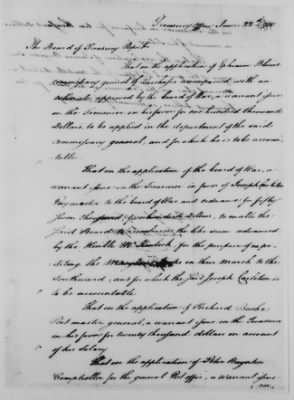 Treasury Office June 22d 1780
The Board of Treasury Report
That on the application of Ephraim Blaine
commissary general of purchases accompanied with an
estimate approved by the board of War, a warrant issue
on the Treasurer in his favor for one hundred thousand
Dollars, to be applied in the department of the said
commissary general, and for which he is to be accoun
table.
That on the application of the board of War, a
warrant issue on the Treasurer in favor of Joseph Carleton
Pay master to the board of War and ordnance for fifty
thousand hundred dollars, to enable the
said Board to the like sum advanced
by the Honble Mr for the purpose of expe
diting the on their march to the
Southward; and for which the said Joseph Carleton is
to be accountable.
That on the application of Richard Bache
Post master general, a warrant issue on the Treasurer
in his favor for twenty thousand dollars on account
of his salary
That on the application of Peter Baynton
Comptroller for the general Post office, a warrant issue
on